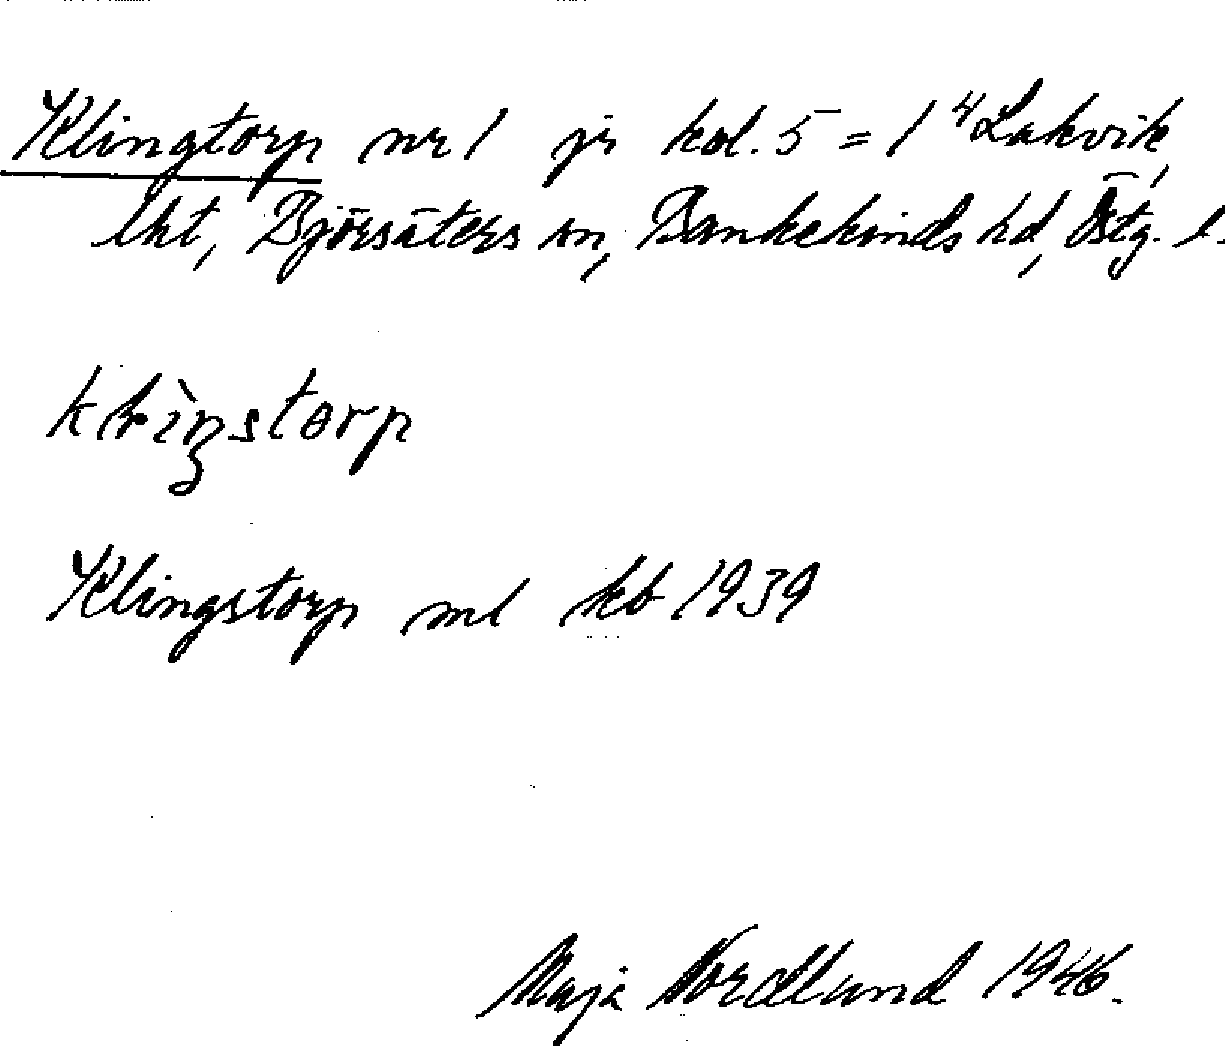 Klingtorp nr 1 jr kol. 5 = 1⁴ Lakvik,
lht, Björsäters sn, Bankekinds hd, Östg. l.
Klingstorp ml kb 1939
Maja Nordlund 1946.